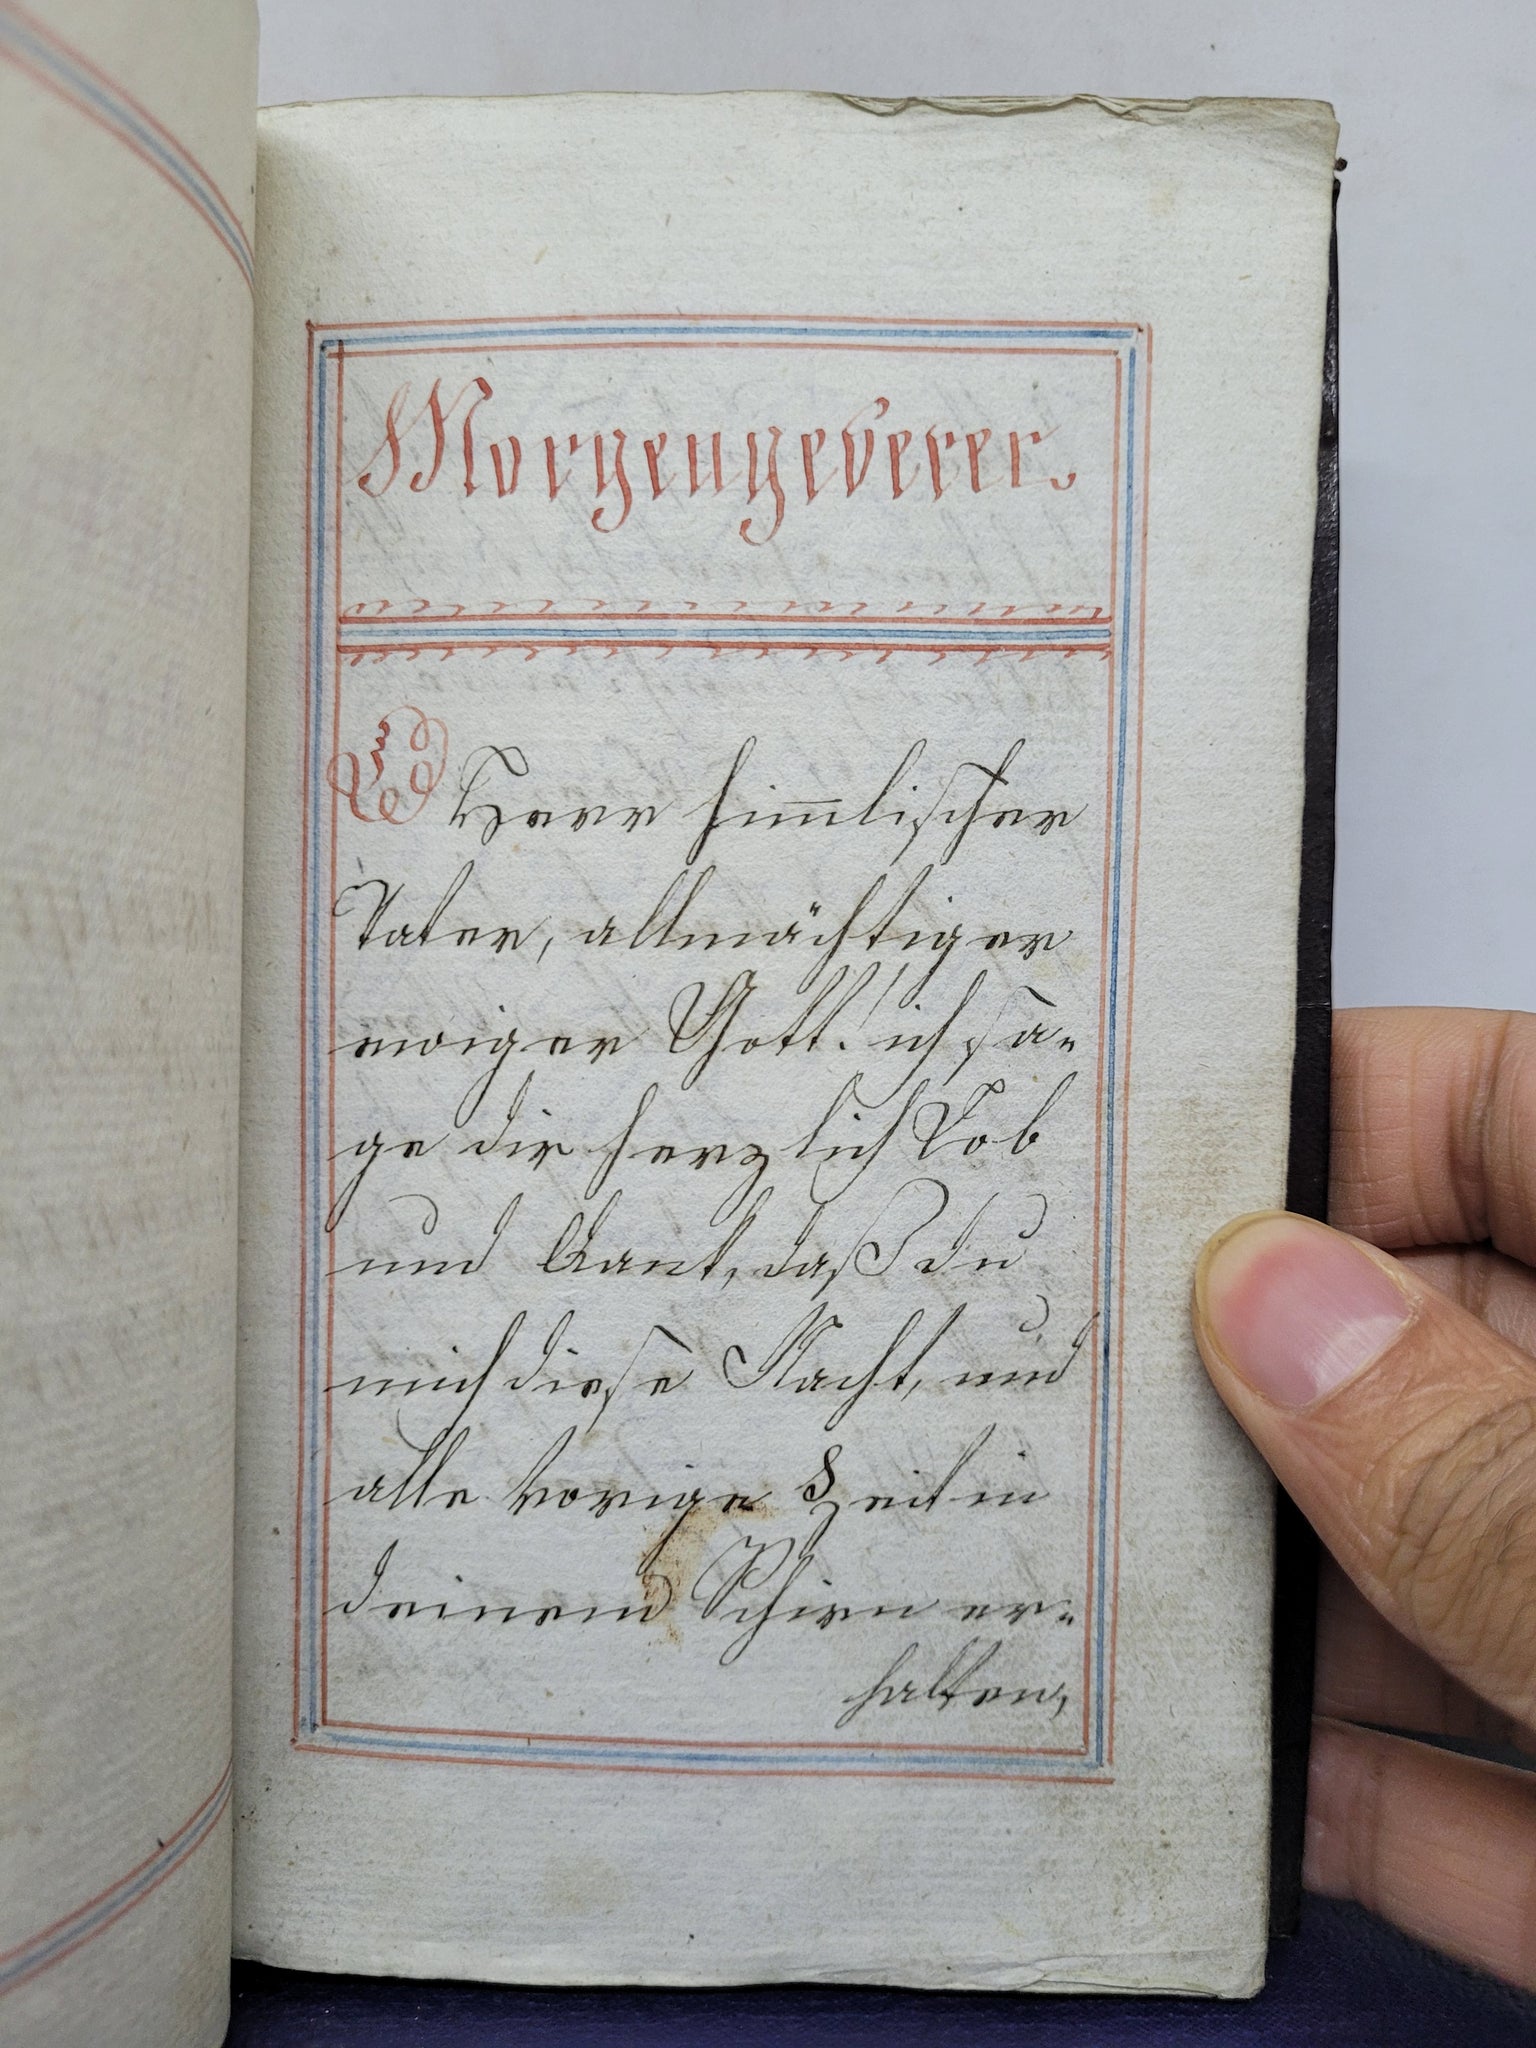 Morgengebeter.
O Herr him̅lischer
Vater, allmächtiger
ewiger Gott! ich sa-
ge dir herzlich Lob
und Dank, daß du
mich diese Nacht, und
alle vorige Zeit in
deinem Schirm er-
halten,